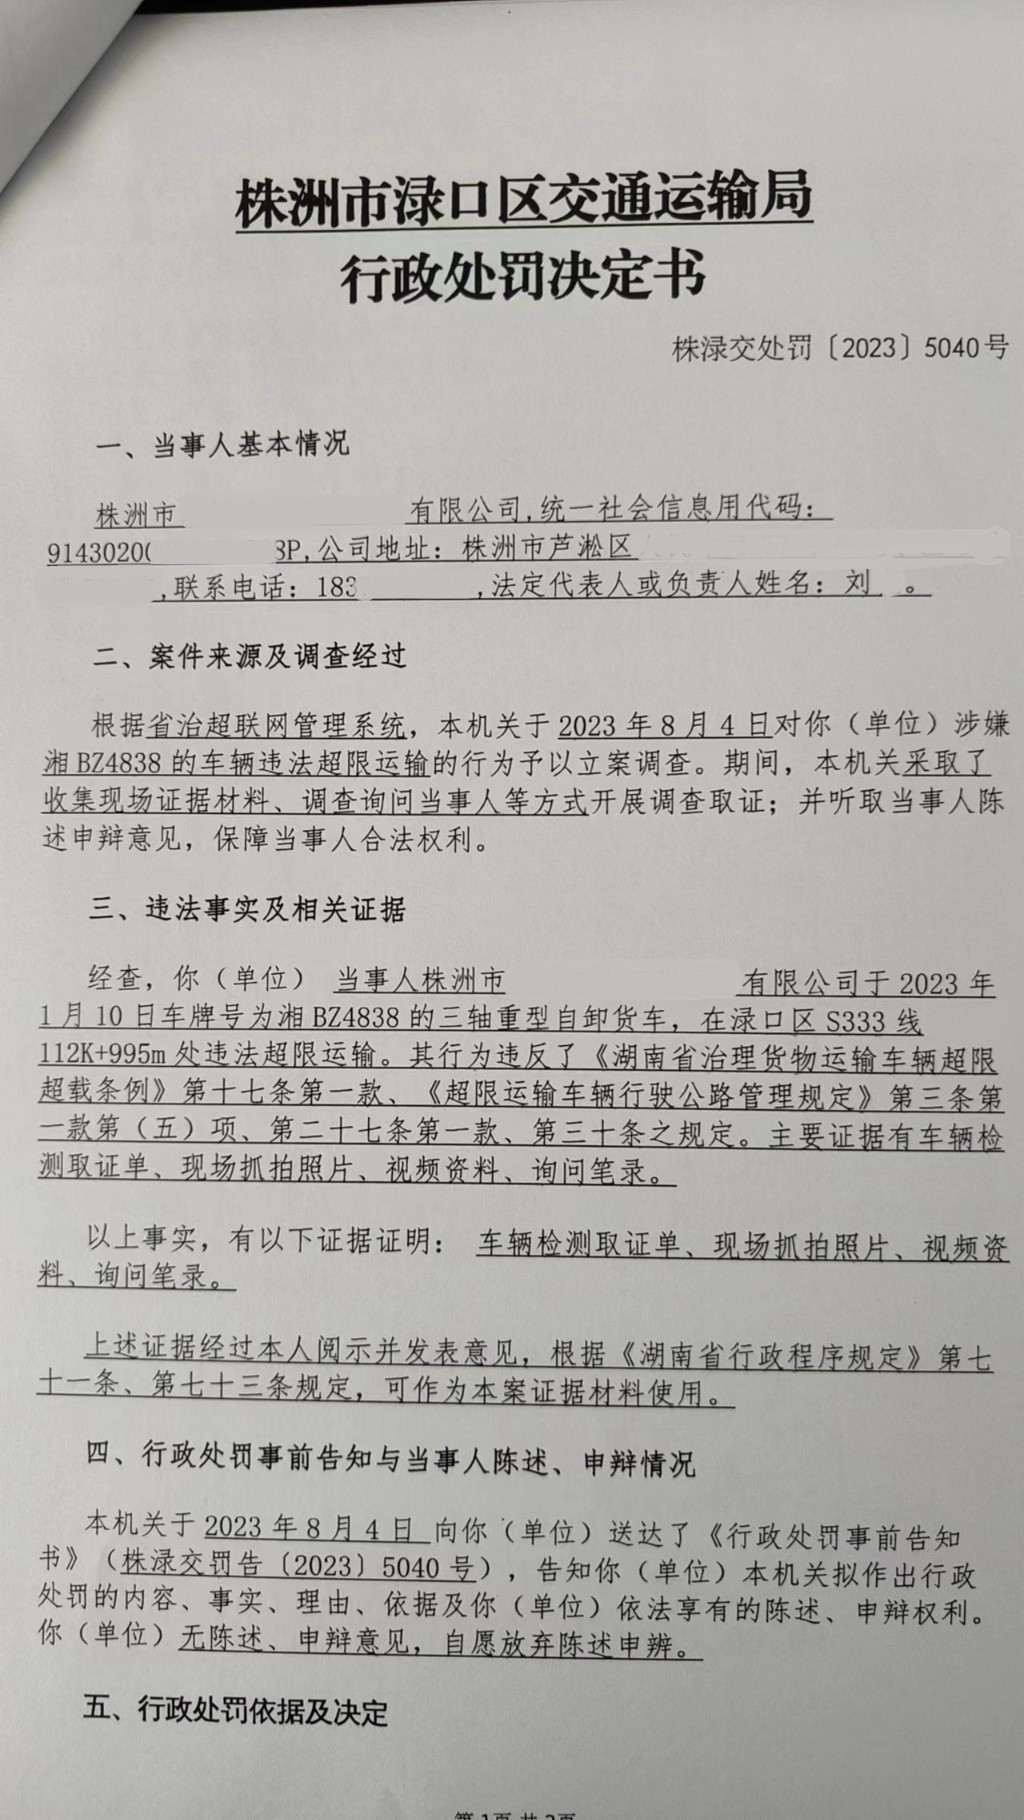 株洲市渌口区交通运输局
行政处罚决定书
株渌交处罚〔2023〕5040号
一、当事人基本情况
株洲市 有限公司,统一社会信息用代码：
9143020( 3P,公司地址：株洲市芦淞区
,联系电话：183 ,法定代表人或负责人姓名：刘 。
二、案件来源及调查经过
根据省治超联网管理系统，本机关于 2023 年 8 月 4 日对你（单位）涉嫌
湘 BZ4838 的车辆违法超限运输的行为予以立案调查。期间，本机关采取了
收集现场证据材料、调查询问当事人等方式开展调查取证；并听取当事人陈
述申辩意见，保障当事人合法权利。
三、违法事实及相关证据
经查，你（单位） 当事人株洲市 有限公司于 2023 年
1 月 10 日车牌号为湘 BZ4838 的三轴重型自卸货车，在渌口区 S333 线
112K+995m 处违法超限运输。其行为违反了《湖南省治理货物运输车辆超限
超载条例》第十七条第一款、《超限运输车辆行驶公路管理规定》第三条第
一款第（五）项、第二十七条第一款、第三十条之规定。主要证据有车辆检
测取证单、现场抓拍照片、视频资料、询问笔录。
以上事实，有以下证据证明： 车辆检测取证单、现场抓拍照片、视频资
料、询问笔录。
上述证据经过本人阅示并发表意见，根据《湖南省行政程序规定》第七
十一条、第七十三条规定，可作为本案证据材料使用。
四、行政处罚事前告知与当事人陈述、申辩情况
本机关于 2023 年 8 月 4 日 向你（单位）送达了《行政处罚事前告知
书》（株渌交罚告〔2023〕5040 号），告知你（单位）本机关拟作出行政
处罚的内容、事实、理由、依据及你（单位）依法享有的陈述、申辩权利。
你（单位）无陈述、申辩意见，自愿放弃陈述申辨。
五、行政处罚依据及决定
第 1页 共 2页